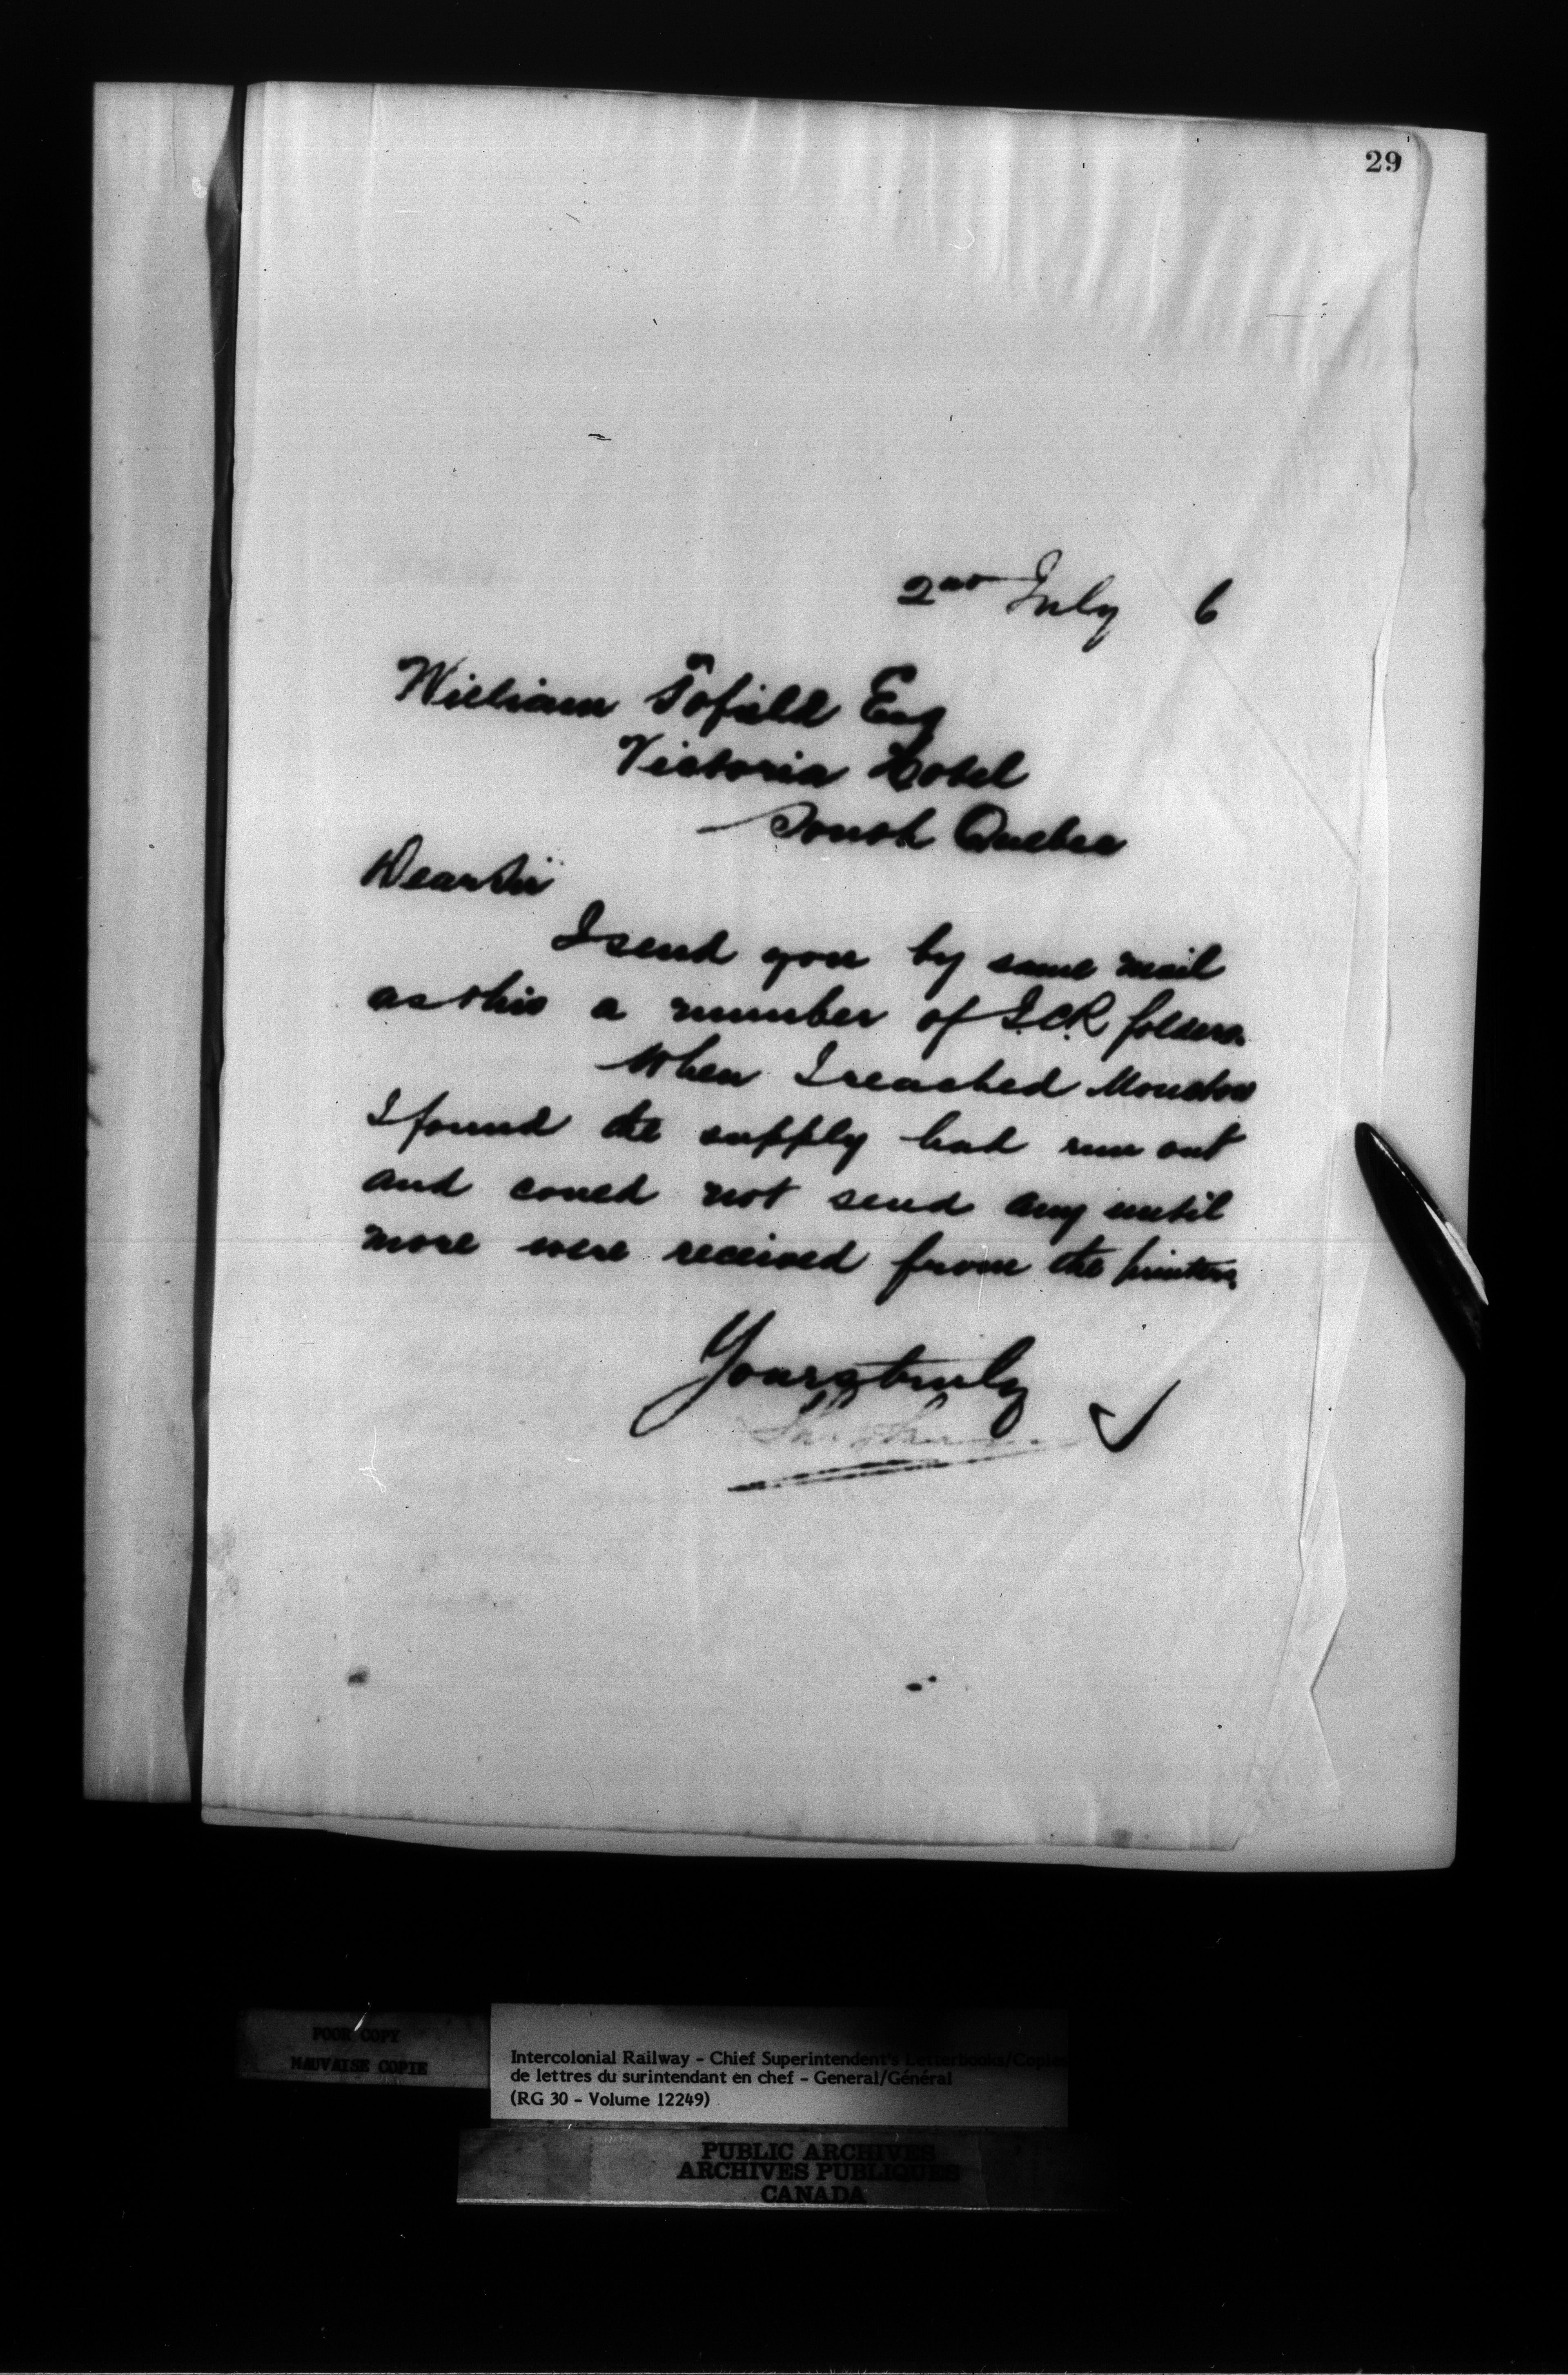 29
2nd July 6
William Tofield Esq
Victoria Hotel
South Quebec
Dear Sir
I send you by same mail
as this a number of I.C.R. folders.
When I reached Moncton
I found the supply had run out
and could not send any until
more were received from the printers.
Yours truly
POOR COPY
MAUVAISE COPIE
Intercolonial Railway - Chief Superintendent's Letterbooks/Copies
de lettres du surintendant en chef - General/Général
(RG 30 - Volume 12249)
PUBLIC ARCHIVES
ARCHIVES PUBLIQUES
CANADA